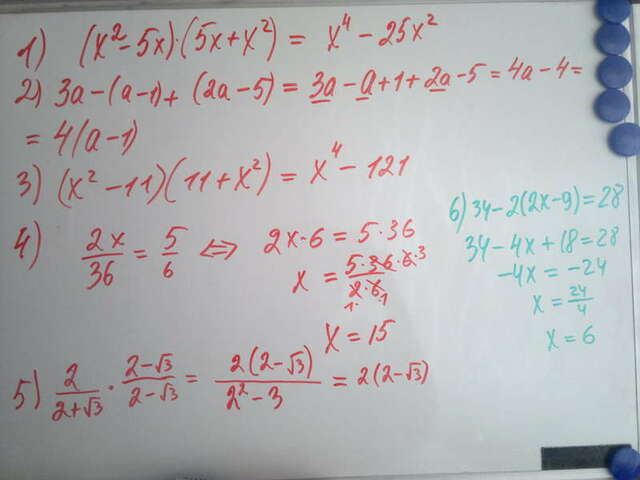 1) (x²-5x)·(5x+x²) = x⁴-25x²
2) 3a-(a-1)+(2a-5) = 3a-a+1+2a-5=4a-4=
= 4(a-1)
3) (x²-11)(11+x²) = x⁴-121
4) 2x/36 = 5/6 ⇔ 2x·6 = 5·36
x = 5·36
2·6
x = 15
5) 2/(2+√3) · (2-√3)/(2-√3) = 2(2-√3)/(2²-3) = 2(2-√3)
6) 34-2(2x-9)=28
34-4x+18=28
-4x=-24
x=24/4
x=6